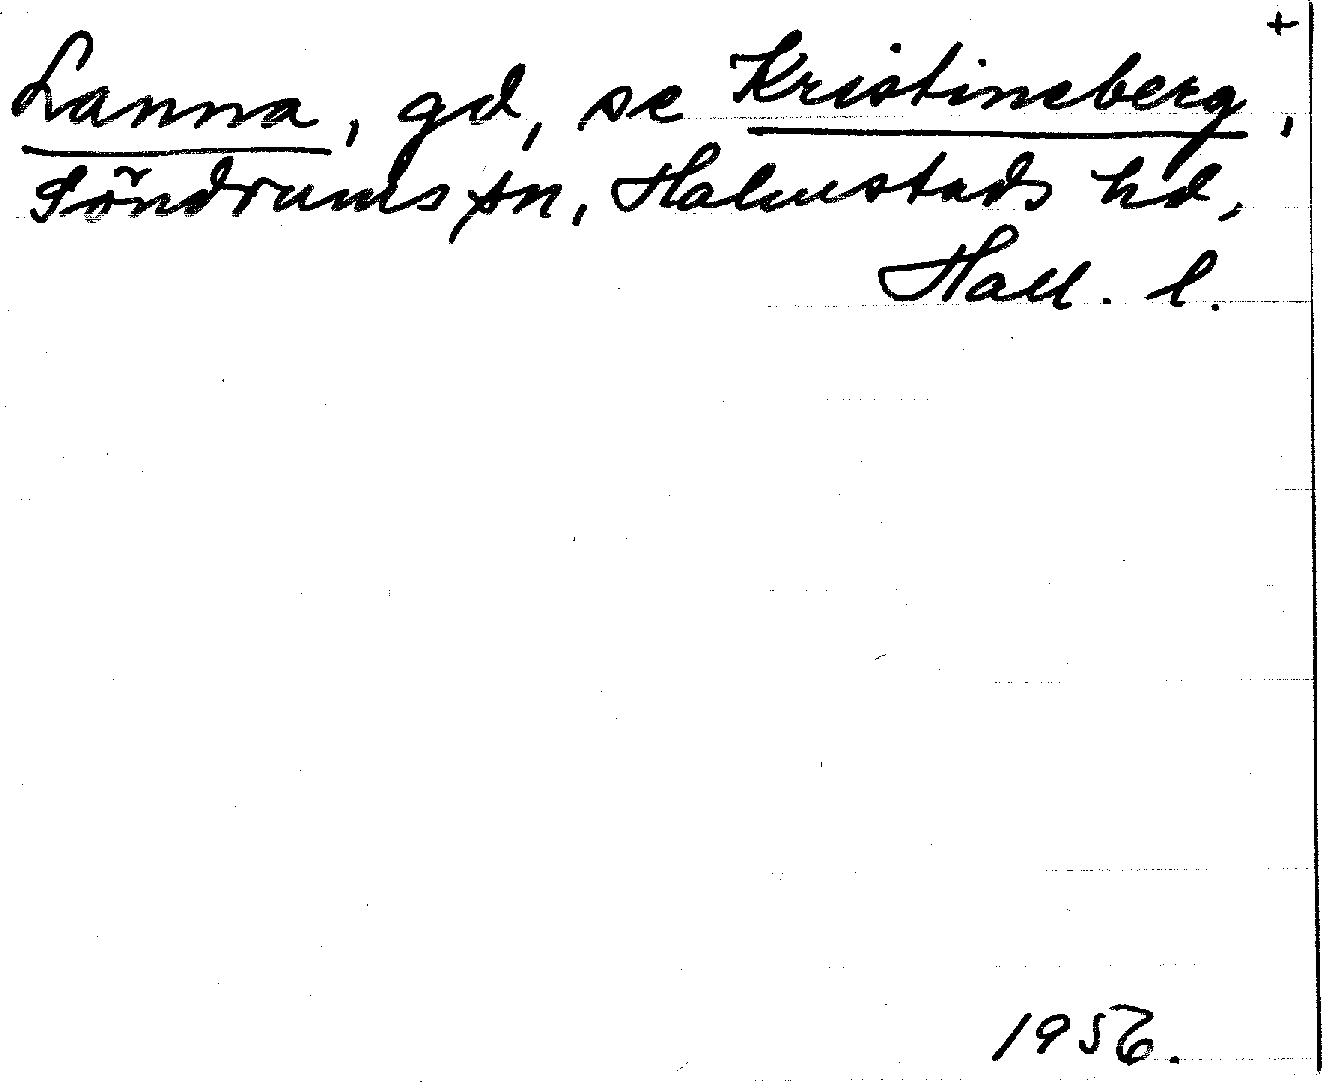 +
Lanna, gd, se Kristineberg,
Söndrums sn, Halmstads hd,
Hall. l.
1956.